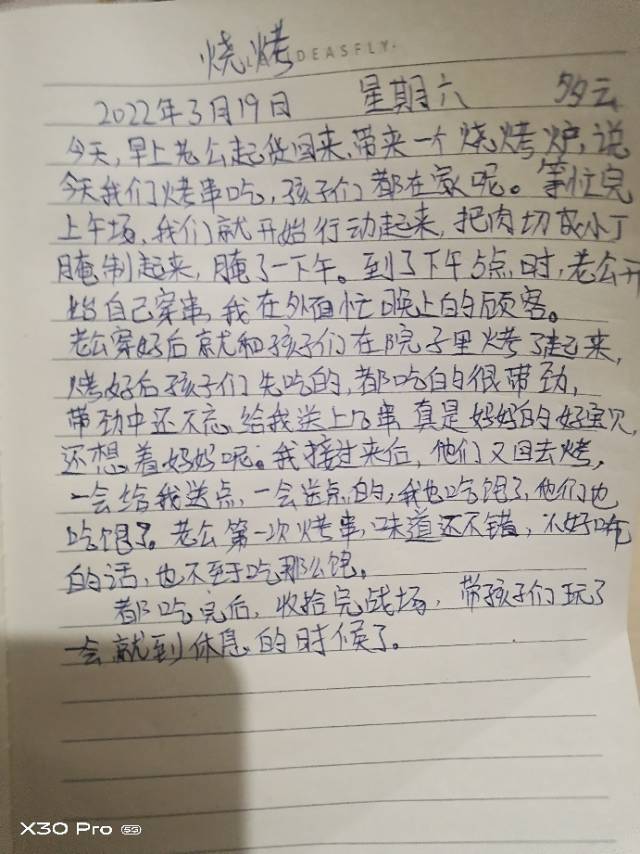 烧烤
DEASFLY.
2022年3月19日 星期六 多云
今天,早上老公起货回来,带来一个烧烤炉,说
今天我们烤串吃,孩子们都在家呢。等忙完
上午场,我们就开始行动起来,把肉切成小丁
腌制起来,腌了一下午。到了下午5点时,老公开
始自己穿串,我在外面忙晚上的顾客。
老公穿好后就和孩子们在院子里烤了起来,
烤好后孩子们先吃的,都吃的很带劲,
带劲中还不忘给我送上几串,真是妈妈的好宝贝,
还想着妈妈呢。我接过来后,他们又回去烤,
一会给我送点,一会送点的,我也吃饱了,他们也
吃饱了。老公第一次烤串,味道还不错,不好吃
的话,也不至于吃那么饱。
都吃完后,收拾完战场,带孩子们玩了
一会就到休息的时候了。
X30 Pro 5G